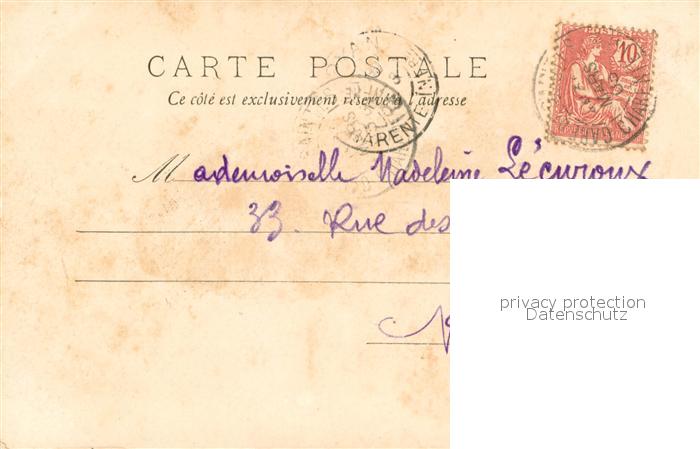 CARTE POSTALE
Ce côté est exclusivement réservé à l'adresse
POSTE
10
Mademoiselle Madeleine Lécuroux
33. Rue des
privacy protection
Datenschutz